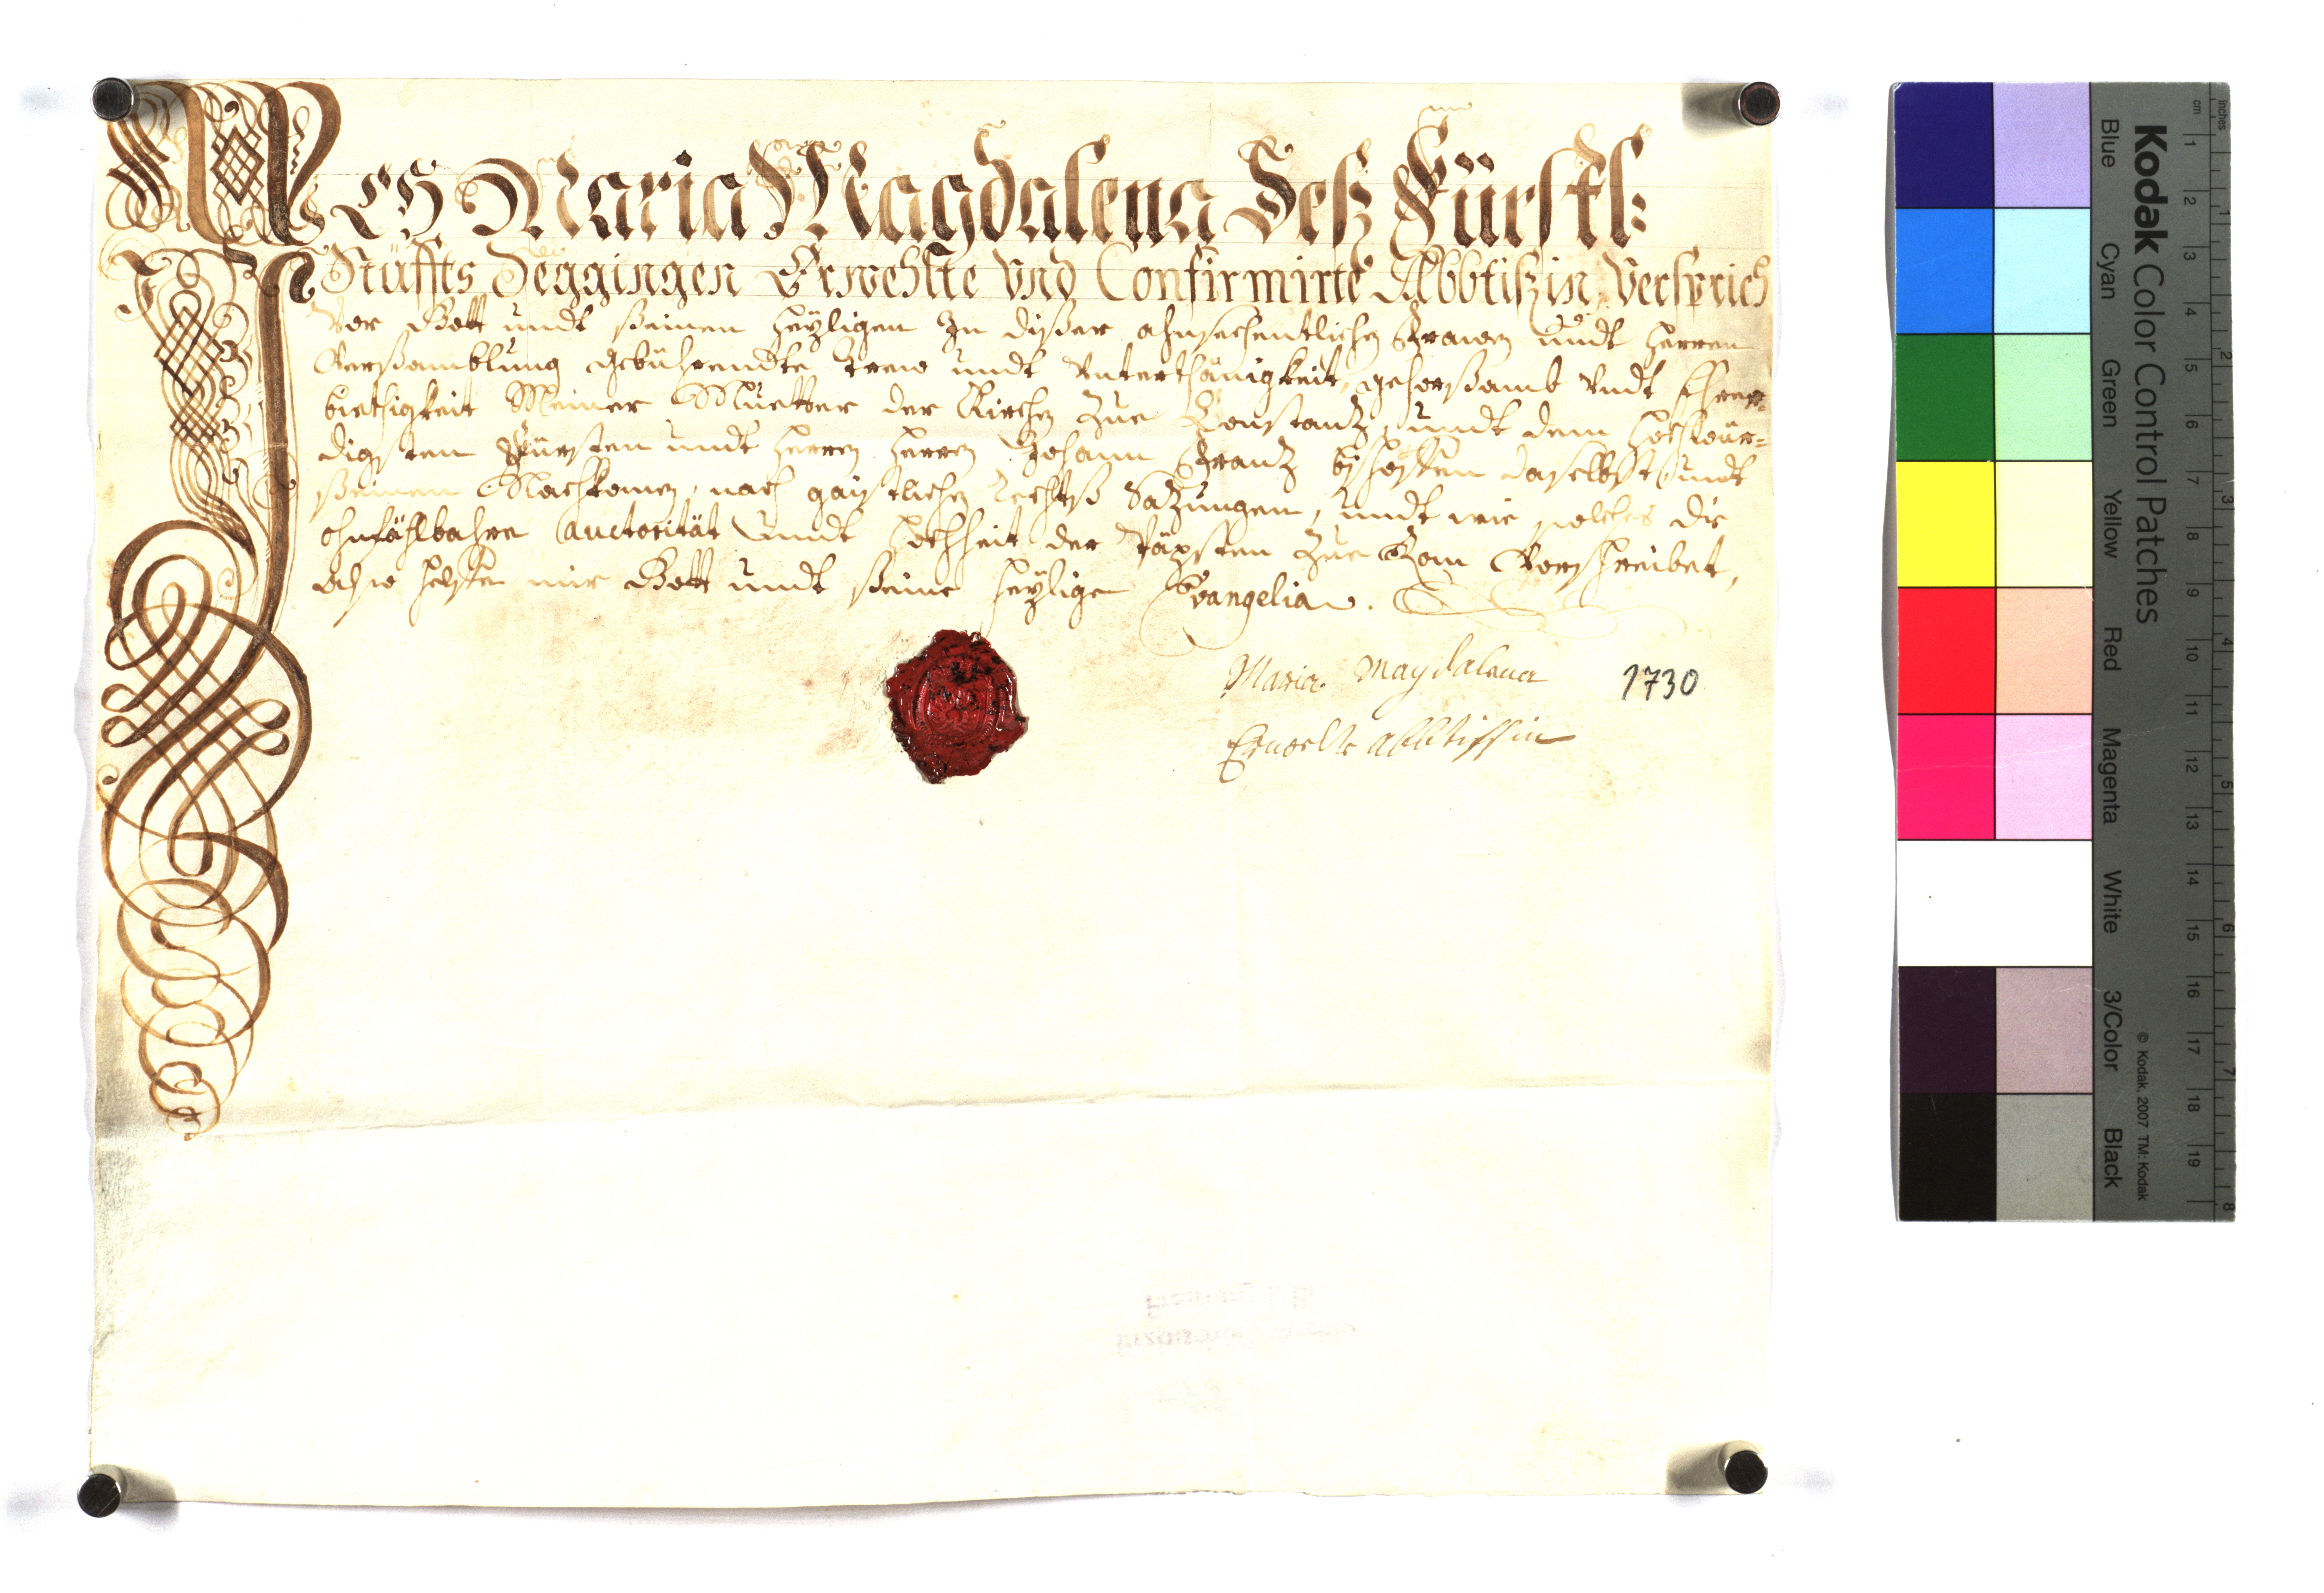 Ich Maria Magdalena Deß Fürstl:
Stüffts Seggingen Erwehlte Vnd Confirmirte Abbtißin, Versprich
Vor Gott undt ßeinen heyligen In dißer ahnsehentlichen Frawen undt Herren
Verßamblung gebührendte trew undt Vnterthänigkeit, gehorßamb Vndt Ehrer-
biethigkeit Meiner Muetter der Kirchen zue Constantz, undt dem Hochwür=
digsten Fürsten undt Herren Herren Johann Frantz bischoffen daselbst undt
ßeinen Nachkomen, nach gaistlichen rechtß Satzungen, undt wie solches die
ohnfählbahre auctorität undt Hochheit der Päpsten zue Rom Vorschreibet,
Also helffe mir Gott undt ßeine heylige Evangelia.
Maria Magdalena
Erwelte abbtissin
1730
Kodak Color Control Patches
Blue
Cyan
Green
Yellow
Red
Magenta
White
3/Color
Black
© Kodak, 2007 TM: Kodak
inches
cm
1 2 3 4 5 6 7 8 9 10 11 12 13 14 15 16 17 18 19
1 2 3 4 5 6 7 8